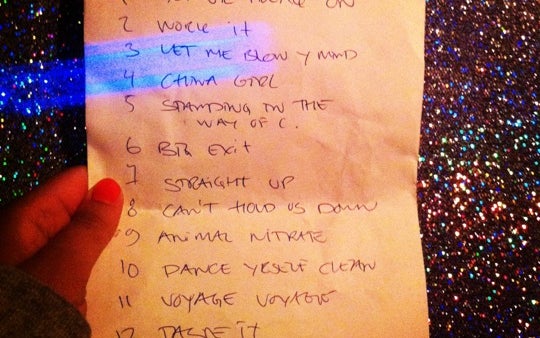 ON
2 WORK it
3 LET ME BLOW Y MIND
4 CHINA GIRL
5 STANDING IN THE
WAY OF C.
6 BIG EXIT
7 STRAIGHT UP
8 CAN'T HOLD US DOWN
9 ANIMAL NITRATE
10 DANCE YRSELF CLEAN
11 VOYAGE VOYAGE
12 IT